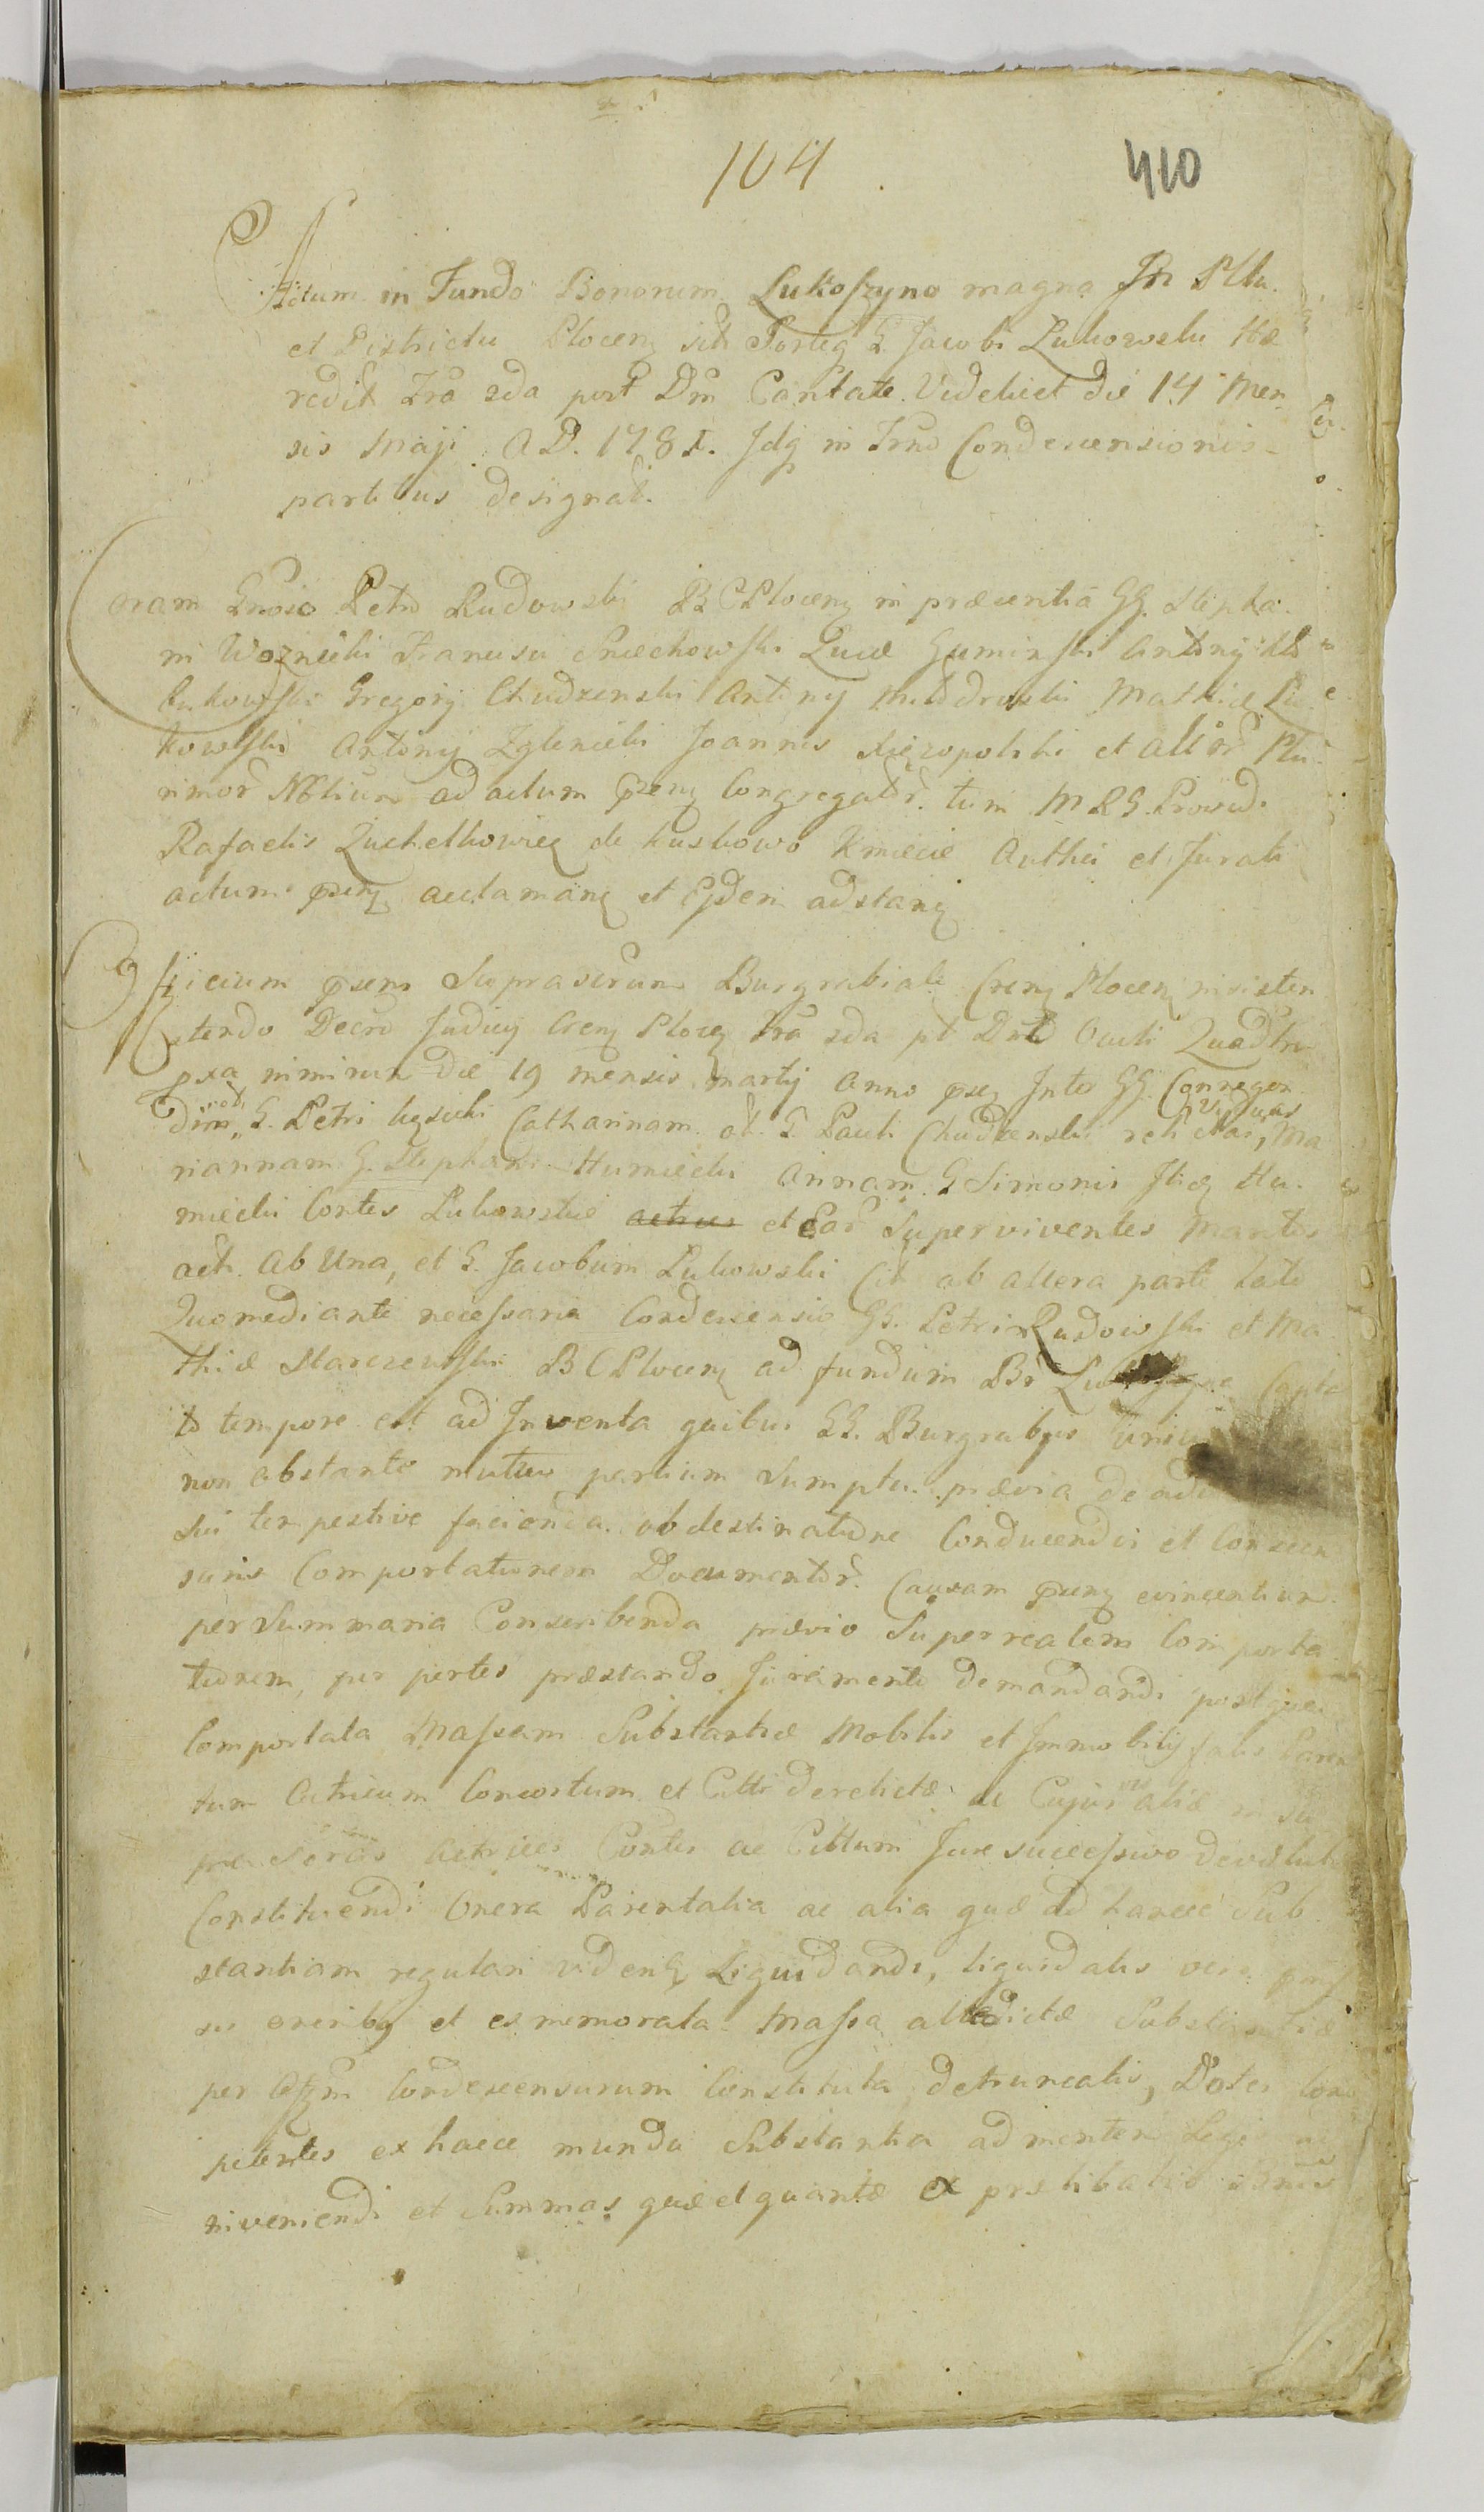 104
410
Actum in Fundo Bonorum Lukoszyno magno In Pltu
et Districtu Plocen sit Sorteq G. Jacobi Lukowski Hæ
redit Fra 2da post Dm Cantate. Videlicet die 14 Men
sis Maji A D. 1781. Idq in Trno Condescensionis
partibus designat.
Coram Gnoso Petro Rudowski B C Plocen in præsentia GG. Stepha
ni Woznicki Francisci Sniechowski Lucæ Guminski Antonij
Lukowski Gregorij Chudzenski Antonij Mathiæ Lu
kowski Antonij Zglenicki Joannis et alior Plu
rimor Nblium ad actum præn Congregator. tum M R G. Provid.
Rafaelis de Kuskowo Kmiecie Authci et Jurati
actum præn acclaman et Ejdem adstan
Officium præns Suprascrum Burgrabiale Cren Plocen insisten
tendo Decro Judicij Cren Plocen Fra 2da pt Dnicam Oculi Quadra
pxa nimirum die 19 mensis Martij Anno præ Inter GG. Conregon
dim G. Petri Catharinam ol. G. Pauli Chudzenski relictas Viduas, Ma
riannam G. Stephani Humiecki Annam G Simonis Hu
miecki Contes Lukowskie actrices et Ear Superviventes Maritos
act. ab Una, et G. Jacobum Lukowski Cit ab altera parte lato
Quo mediante necessaria Condescensio GG. Petri Rudowski et Ma
thiæ Starczewski B C Plocen ad fundum Br Capta
to tempore est ad Inventa quibus GG. Burgrabijs
non obstante mutuo partium Sumptu prævia de
sui tempestive facienda ob destinatione Conducendi et Conscen
suris Comportationem Documentor. Causam præn evincentium
per Summaria Conscribenda prævio Super realem Comporta
tionem, per partes præstando Juramento demandandi post quæ
Comportata Massam Substantiæ Mobilis et Immobilis Paren
tum Actricum Consortum et Citti derelictæ ac Cujusvis aliæ in Su
per Sorores actrices Contes ac Cittum Jure successivo devolut
Constituendi Onera Parentalia ac alia quæ ad hancce Sub
stantiam regulari viden Liquidandi, liquidatis vero
sis oneribq et ex memorata Massa attedictæ Substantiæ
per Offm Condescensurum Constituta detruncatis, Dotes Com
petentes ex haece munda Substantia ad mentem Legis
inveniendi et Summas quæ et quantæ ex prælibatis Bonis